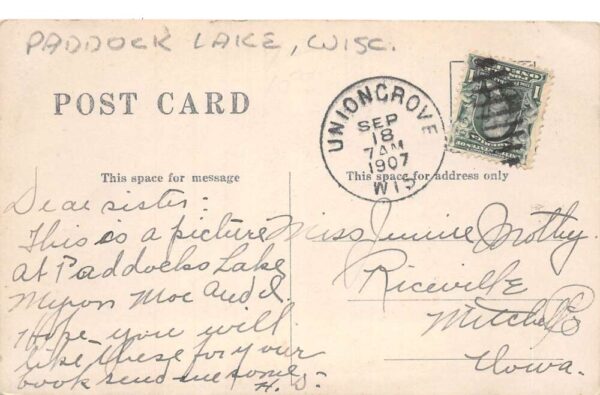 PADDOCK LAKE, WISC.
POST CARD
UNION GROVE
SEP
18
7 AM
1907
WIS
This space for message
This space for address only
Dear sister:
This is a picture
at Paddocks Lake
Myron Moe and I.
Hope you will
like these for your
book send me some
H. S.
Miss Jennie
Riceville
Mitchell Co
Iowa.